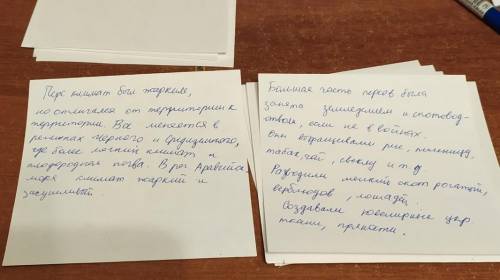 Перс климат был жарким,
но отличался от территории к
территории. Все меняется в
регионах Черного и Средиземного,
где более мягкий климат и
плодородная почва. В рег. Аравийск.
моря климат жаркий и
засушливый.
Большая часть персов была
занята земледелием и скотовод-
ством, если не в войнах.
Они выращивали рис, пшеницу,
табак, чай, свеклу и т.д.
Разводили мелкий скот рогатый,
верблюдов, лошадей.
Создавали ювелирные укр
ткани, пряности.